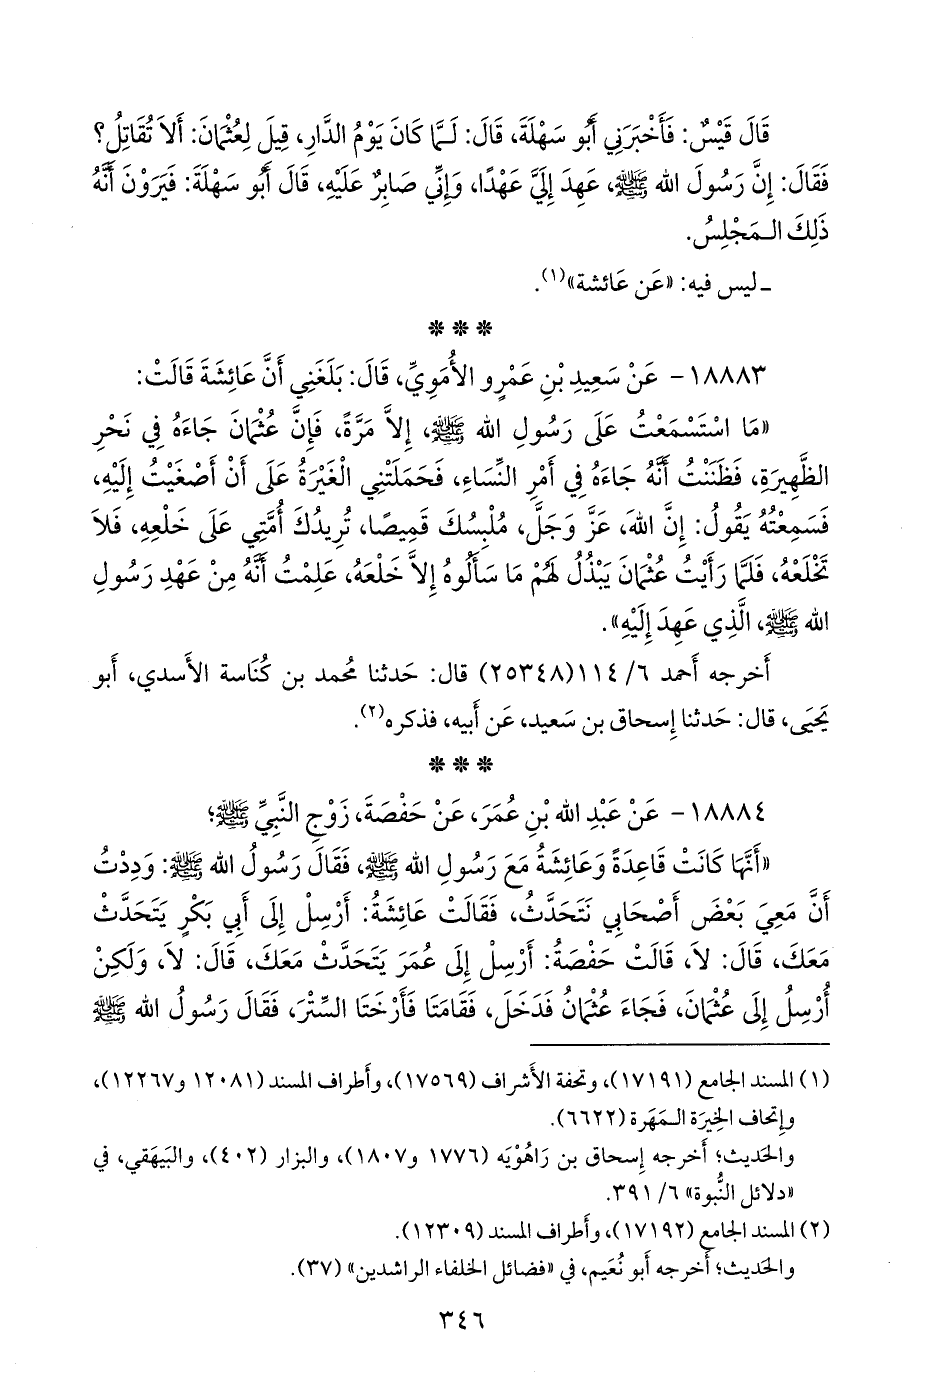 قَالَ قَيْسٌ: فَأَخْبَرَنِي أَبُو سَهْلَةَ، قَالَ: لَـمَّا كَانَ يَوْمُ الدَّارِ، قِيلَ لِعُثْمَانَ: أَلاَ تُقَاتِلُ؟
فَقَالَ: إِنَّ رَسُولَ الله ﷺ، عَهِدَ إِلَيَّ عَهْدًا، وَإِنِّي صَابِرٌ عَلَيْهِ، قَالَ أَبُو سَهْلَةَ: فَيَرَوْنَ أَنَّهُ
ذَلِكَ الـمَجْلِسُ.
ـ ليس فيه: «عَن عَائشة»(١).
* * *
١٨٨٨٣ - عَنْ سَعِيدِ بْنِ عَمْرِو الأُمَوِيِّ، قَالَ: بَلَغَنِي أَنَّ عَائِشَةَ قَالَتْ:
«مَا اسْتَسْمَعْتُ عَلَى رَسُولِ الله ﷺ، إِلاَّ مَرَّةً، فَإِنَّ عُثْمَانَ جَاءَهُ فِي نَحْرِ
الظَّهِيرَةِ، فَظَنَنْتُ أَنَّهُ جَاءَهُ فِي أَمْرِ النِّسَاءِ، فَحَمَلَتْنِي الْغَيْرَةُ عَلَى أَنْ أَصْغَيْتُ إِلَيْهِ،
فَسَمِعْتُهُ يَقُولُ: إِنَّ اللهَ، عَزَّ وَجَلَّ، مُلْبِسُكَ قَمِيصًا، تُرِيدُكَ أُمَّتِي عَلَى خَلْعِهِ، فَلاَ
تَخْلَعْهُ، فَلَمَّا رَأَيْتُ عُثْمَانَ يَبْذُلُ لَهُمْ مَا سَأَلُوهُ إِلاَّ خَلْعَهُ، عَلِمْتُ أَنَّهُ مِنْ عَهْدِ رَسُولِ
الله ﷺ، الَّذِي عَهِدَ إِلَيْهِ».
أَخرجه أَحمد ٦/ ١١٤(٢٥٣٤٨) قال: حَدثنا مُحمد بن كُنَاسة الأَسدي، أَبو
يَحيَى، قال: حَدثنا إِسحاق بن سَعيد، عَن أَبيه، فذكره(٢).
* * *
١٨٨٨٤ - عَنْ عَبْدِ الله بْنِ عُمَرَ، عَنْ حَفْصَةَ، زَوْجِ النَّبِيِّ ﷺ؛
«أَنَّهَا كَانَتْ قَاعِدَةً وَعَائِشَةُ مَعَ رَسُولِ الله ﷺ، فَقَالَ رَسُولُ الله ﷺ: وَدِدْتُ
أَنَّ مَعِيَ بَعْضَ أَصْحَابِي نَتَحَدَّثُ، فَقَالَتْ عَائِشَةُ: أَرْسِلْ إِلَى أَبِي بَكْرٍ يَتَحَدَّثْ
مَعَكَ، قَالَ: لاَ، قَالَتْ حَفْصَةُ: أَرْسِلْ إِلَى عُمَرَ يَتَحَدَّثْ مَعَكَ، قَالَ: لاَ، وَلَكِنْ
أُرْسِلُ إِلَى عُثْمَانَ، فَجَاءَ عُثْمَانُ فَدَخَلَ، فَقَامَتَا فَأَرْخَتَا السِّتْرَ، فَقَالَ رَسُولُ الله ﷺ
(١) المسند الجامع (١٧١٩١)، وتحفة الأَشراف (١٧٥٦٩)، وأَطراف المسند (١٢٠٨١ و١٢٢٦٧)،
وإِتحاف الخِيرَة الـمَهَرة (٦٦٢٢).
والحَديث؛ أَخرجه إِسحاق بن رَاهُوْيَه (١٧٧٦ و١٨٠٧)، والبزار (٤٠٢)، والبَيهَقي، في
«دلائل النُّبوة» ٦/ ٣٩١.
(٢) المسند الجامع (١٧١٩٢)، وأَطراف المسند (١٢٣٠٩).
والحَديث؛ أَخرجه أَبو نُعَيم، في «فضائل الخلفاء الراشدين» (٣٧).
٣٤٦